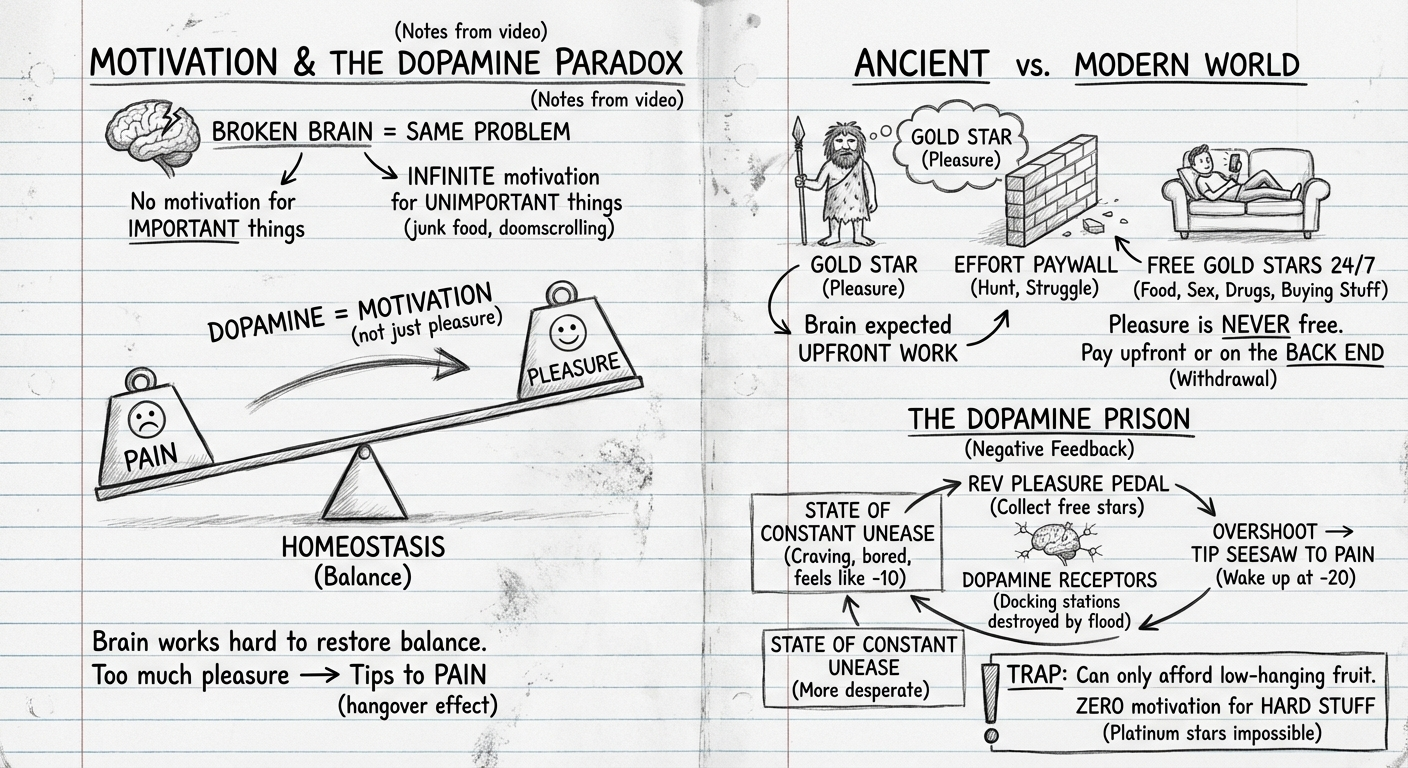 (Notes from video)
MOTIVATION & THE DOPAMINE PARADOX
(Notes from video)
BROKEN BRAIN = SAME PROBLEM
No motivation for
IMPORTANT things
INFINITE motivation
for UNIMPORTANT things
(junk food, doomscrolling)
DOPAMINE = MOTIVATION
(not just pleasure)
PAIN
PLEASURE
HOMEOSTASIS
(Balance)
Brain works hard to restore balance.
Too much pleasure → Tips to PAIN
(hangover effect)
ANCIENT vs. MODERN WORLD
GOLD STAR
(Pleasure)
GOLD STAR
(Pleasure)
Brain expected
UPFRONT WORK
EFFORT PAYWALL
(Hunt, Struggle)
FREE GOLD STARS 24/7
(Food, Sex, Drugs, Buying Stuff)
Pleasure is NEVER free.
Pay upfront or on the BACK END
(Withdrawal)
THE DOPAMINE PRISON
(Negative Feedback)
STATE OF
CONSTANT UNEASE
(Craving, bored,
feels like -10)
REV PLEASURE PEDAL
(Collect free stars)
OVERSHOOT →
TIP SEESAW TO PAIN
(Wake up at -20)
DOPAMINE RECEPTORS
(Docking stations
destroyed by flood)
STATE OF CONSTANT
UNEASE
(More desperate)
! TRAP: Can only afford low-hanging fruit.
ZERO motivation for HARD STUFF
(Platinum stars impossible)